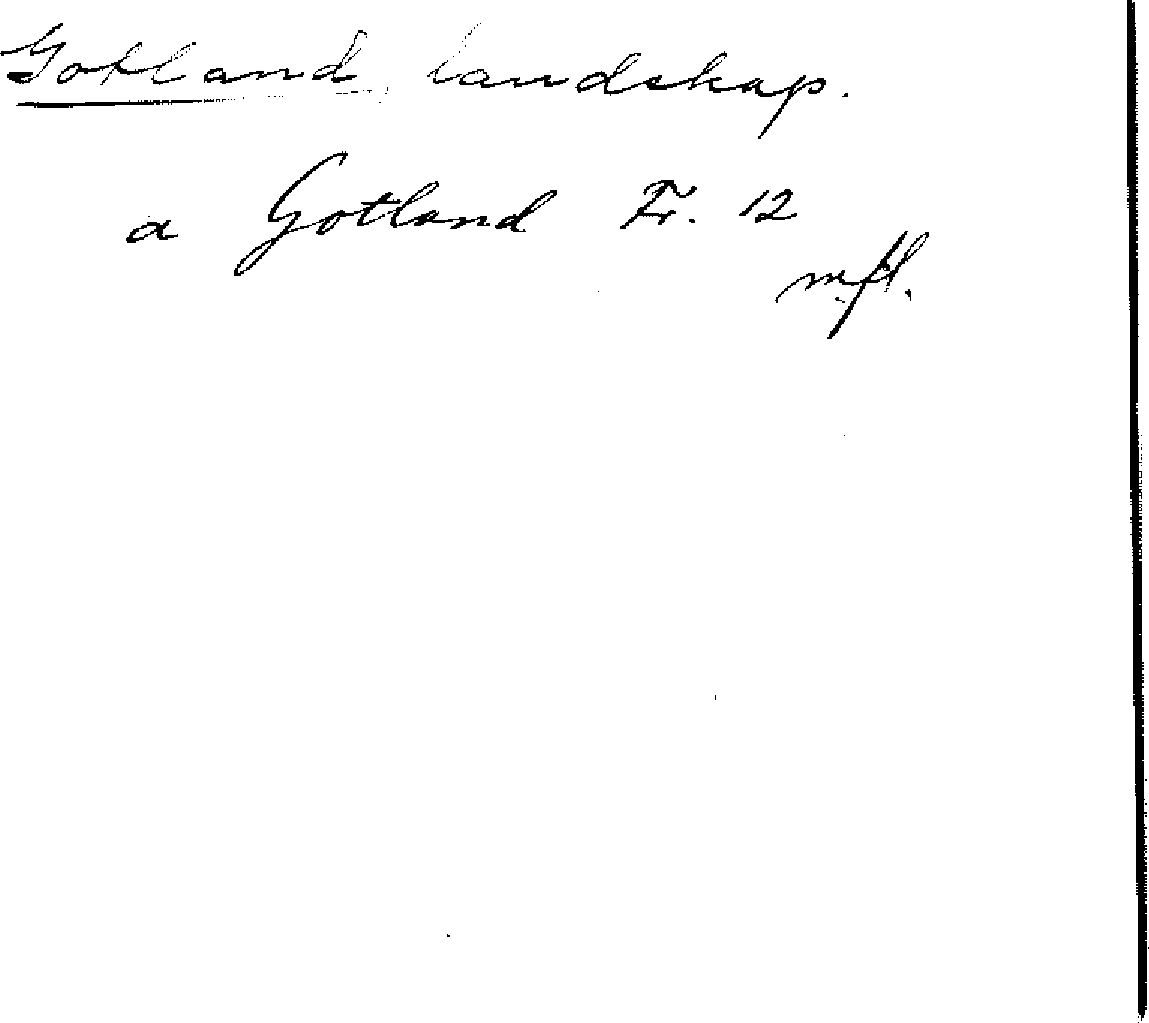 Gotland, landskap.
a Gotland Fr. 12
m.fl.